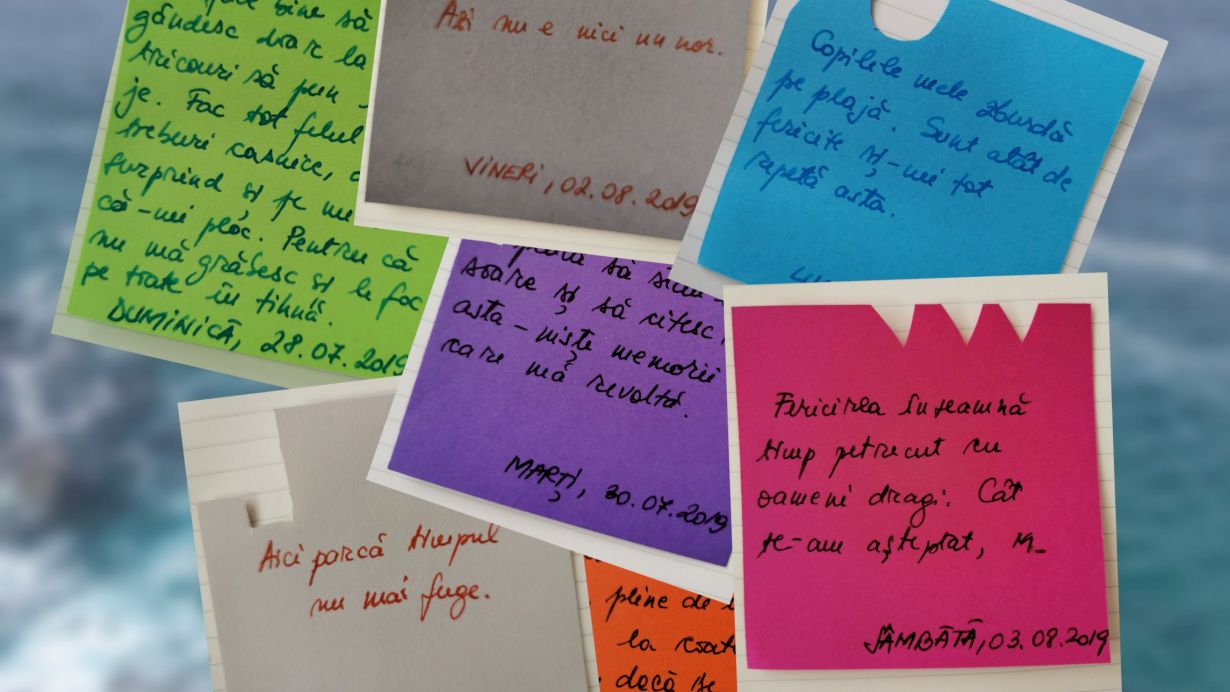 bine să
gândesc doar la
tricouri să pun
je. Fac tot felul
treburi casnice,
surprind și pe
că-mi plac. Pentru că
nu mă grăbesc și le fac
pe toate în tihnă.
DUMINICĂ, 28.07.2019
Azi nu e nici un nor.
VINERI, 02.08.2019
Copilele mele zburdă
pe plajă. Sunt atât de
fericite și-mi tot
repetă asta.
să
soare și să citesc
asta - niște memorii
care mă revoltă.
MARȚI, 30.07.2019
Fericirea înseamnă
timp petrecut cu
oameni dragi. Cât
te-am așteptat, M_
SÂMBĂTĂ, 03.08.2019
Aici parcă timpul
nu mai fuge.
pline de
la
dacă se